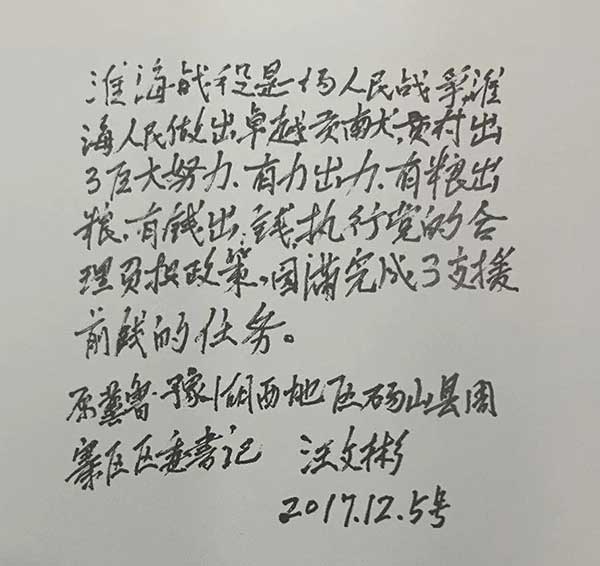 淮海战役是一场人民战争,淮
海人民做出卓越贡献,贡村出
了巨大努力.有力出力.有粮出
粮.有钱出钱,执行党的合
理负担政策,圆满完成了支援
前线的任务。
原冀鲁豫湖西地区砀山县周
寨区区委书记 汪文彬
2017.12.5号